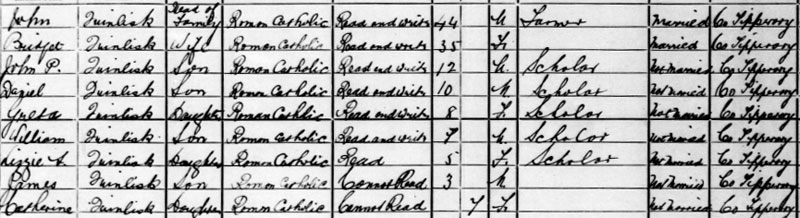 John Quinlisk Head of Family Roman Catholic Read and write 44 M Farmer Married Co Tipperary
Bridget Quinlisk Wife Roman Catholic Read and write 35 F. Married Co Tipperary
John P. Quinlisk Son Roman Catholic Read and write 12 M. Scholar Not Married Co Tipperary
Daniel Quinlisk Son Roman Catholic Read and write 10 M. Scholar Not Married Co Tipperary
Greta Quinlisk Daughter Roman Catholic Read and write 8 F. Scholar Not Married Co Tipperary
William Quinlisk Son Roman Catholic Read and write 7 M Scholar Not Married Co Tipperary
Lizzie A. Quinlisk Daughter Roman Catholic Read 5 F. Scholar Not Married Co Tipperary
James Quinlisk Son Roman Catholic Cannot Read 3 M Not Married Co Tipperary
Catherine Quinlisk Daughter Roman Catholic Cannot Read 7 F. Not Married Co Tipperary